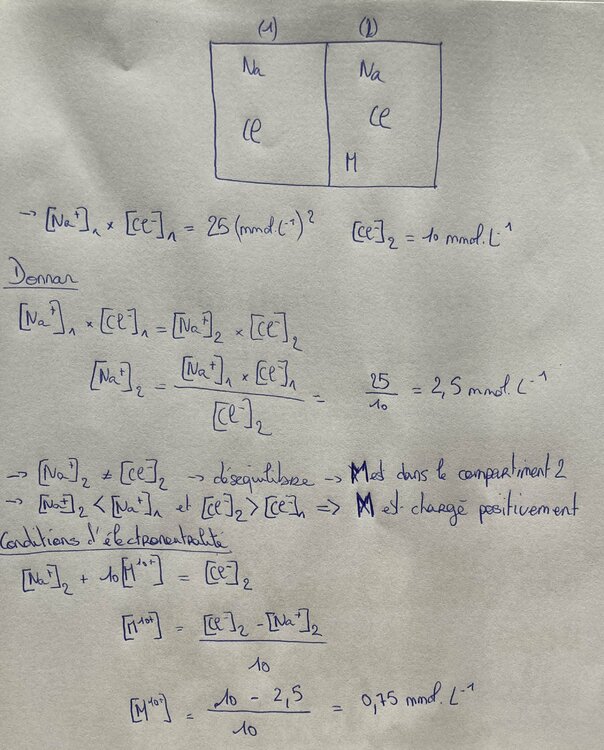 (1) (2)
Na Na
Cl Cl
M
→ [Na⁺]₁ × [Cl⁻]₁ = 25 (mmol.L⁻¹)² [Cl⁻]₂ = 10 mmol.L⁻¹
Donnan
[Na⁺]₁ × [Cl⁻]₁ = [Na⁺]₂ × [Cl⁻]₂
[Na⁺]₂ = [Na⁺]₁ × [Cl⁻]₁ / [Cl⁻]₂ = 25 / 10 = 2,5 mmol.L⁻¹
→ [Na⁺]₂ ≠ [Cl⁻]₂ → déséquilibre → M est dans le compartiment 2
→ [Na⁺]₂ < [Na⁺]₁ et [Cl⁻]₂ > [Cl⁻]₁ => M est chargé positivement
Conditions d'électroneutralité
[Na⁺]₂ + 10[M¹⁰⁺] = [Cl⁻]₂
[M¹⁰⁺] = [Cl⁻]₂ - [Na⁺]₂ / 10
[M¹⁰⁺] = 10 - 2,5 / 10 = 0,75 mmol.L⁻¹